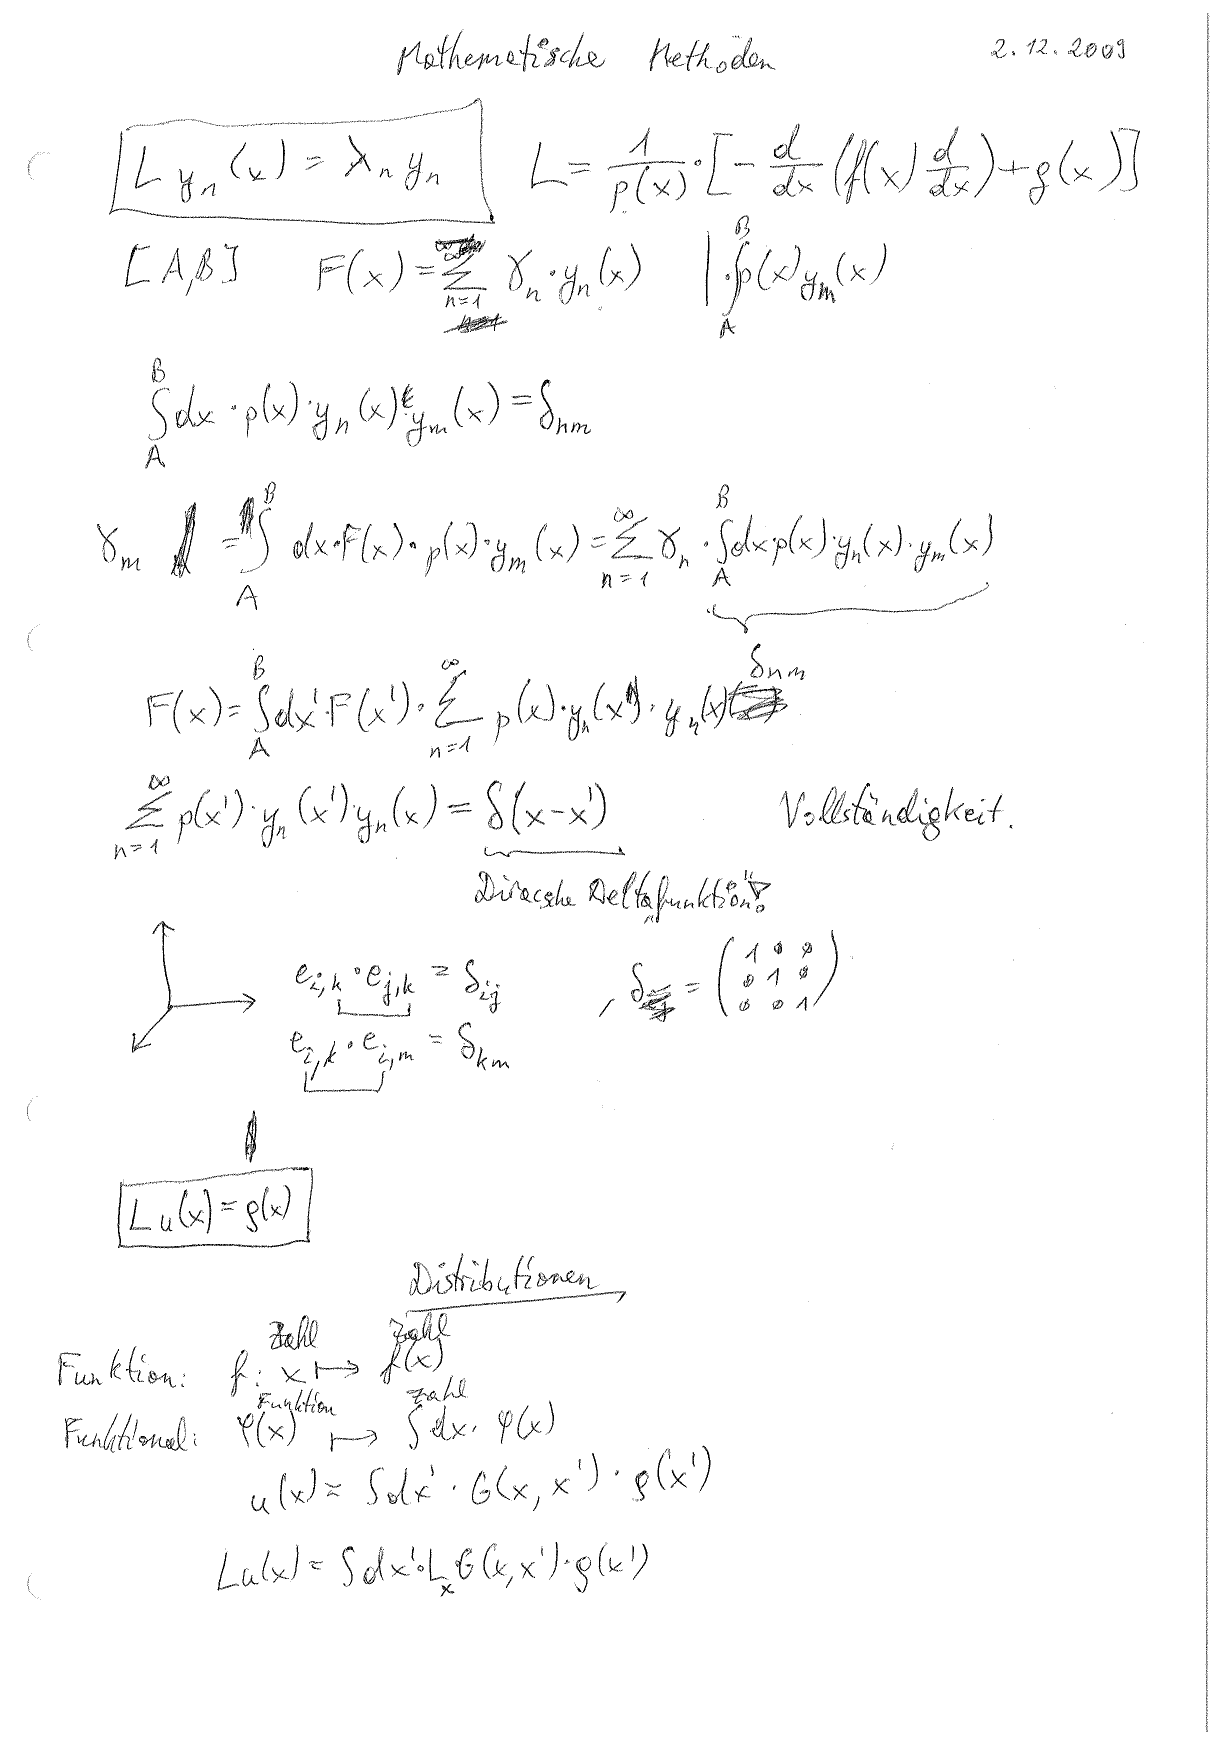 Mathematische Methoden 2.12.2009
L yₙ(x) = λₙ yₙ L = 1/p(x) · [− d/dx (f(x) d/dx) + g(x)]
[A,B] F(x) = ∑_{n=1}^{∞} γₙ · yₙ(x) | · ∫_A^B p(x) yₘ(x)
∫_A^B dx · p(x) · yₙ(x) · yₘ(x) = δₙₘ
γₘ = ∫_A^B dx · F(x) · p(x) · yₘ(x) = ∑_{n=1}^{∞} γₙ · ∫_A^B dx · p(x) · yₙ(x) · yₘ(x)
δₙₘ
F(x) = ∫_A^B dx' · F(x') · ∑_{n=1}^{∞} p(x) · yₙ(x') · yₙ(x)
∑_{n=1}^{∞} p(x') · yₙ(x') · yₙ(x) = δ(x−x') Vollständigkeit.
Diracsche „Deltafunktion"!
e_{i,k} · e_{j,k} = δ_{ij} , δ = (1 0 0; 0 1 0; 0 0 1)
e_{i,k} · e_{i,m} = δ_{km}
L u(x) = ρ(x)
Distributionen
Zahl Zahl
Funktion: f: x ↦ f(x)
Funktion Zahl
Funktional: φ(x) ↦ ∫ dx · φ(x)
u(x) = ∫ dx' · G(x, x') · ρ(x')
L u(x) = ∫ dx' · Lₓ G(x, x') · ρ(x')